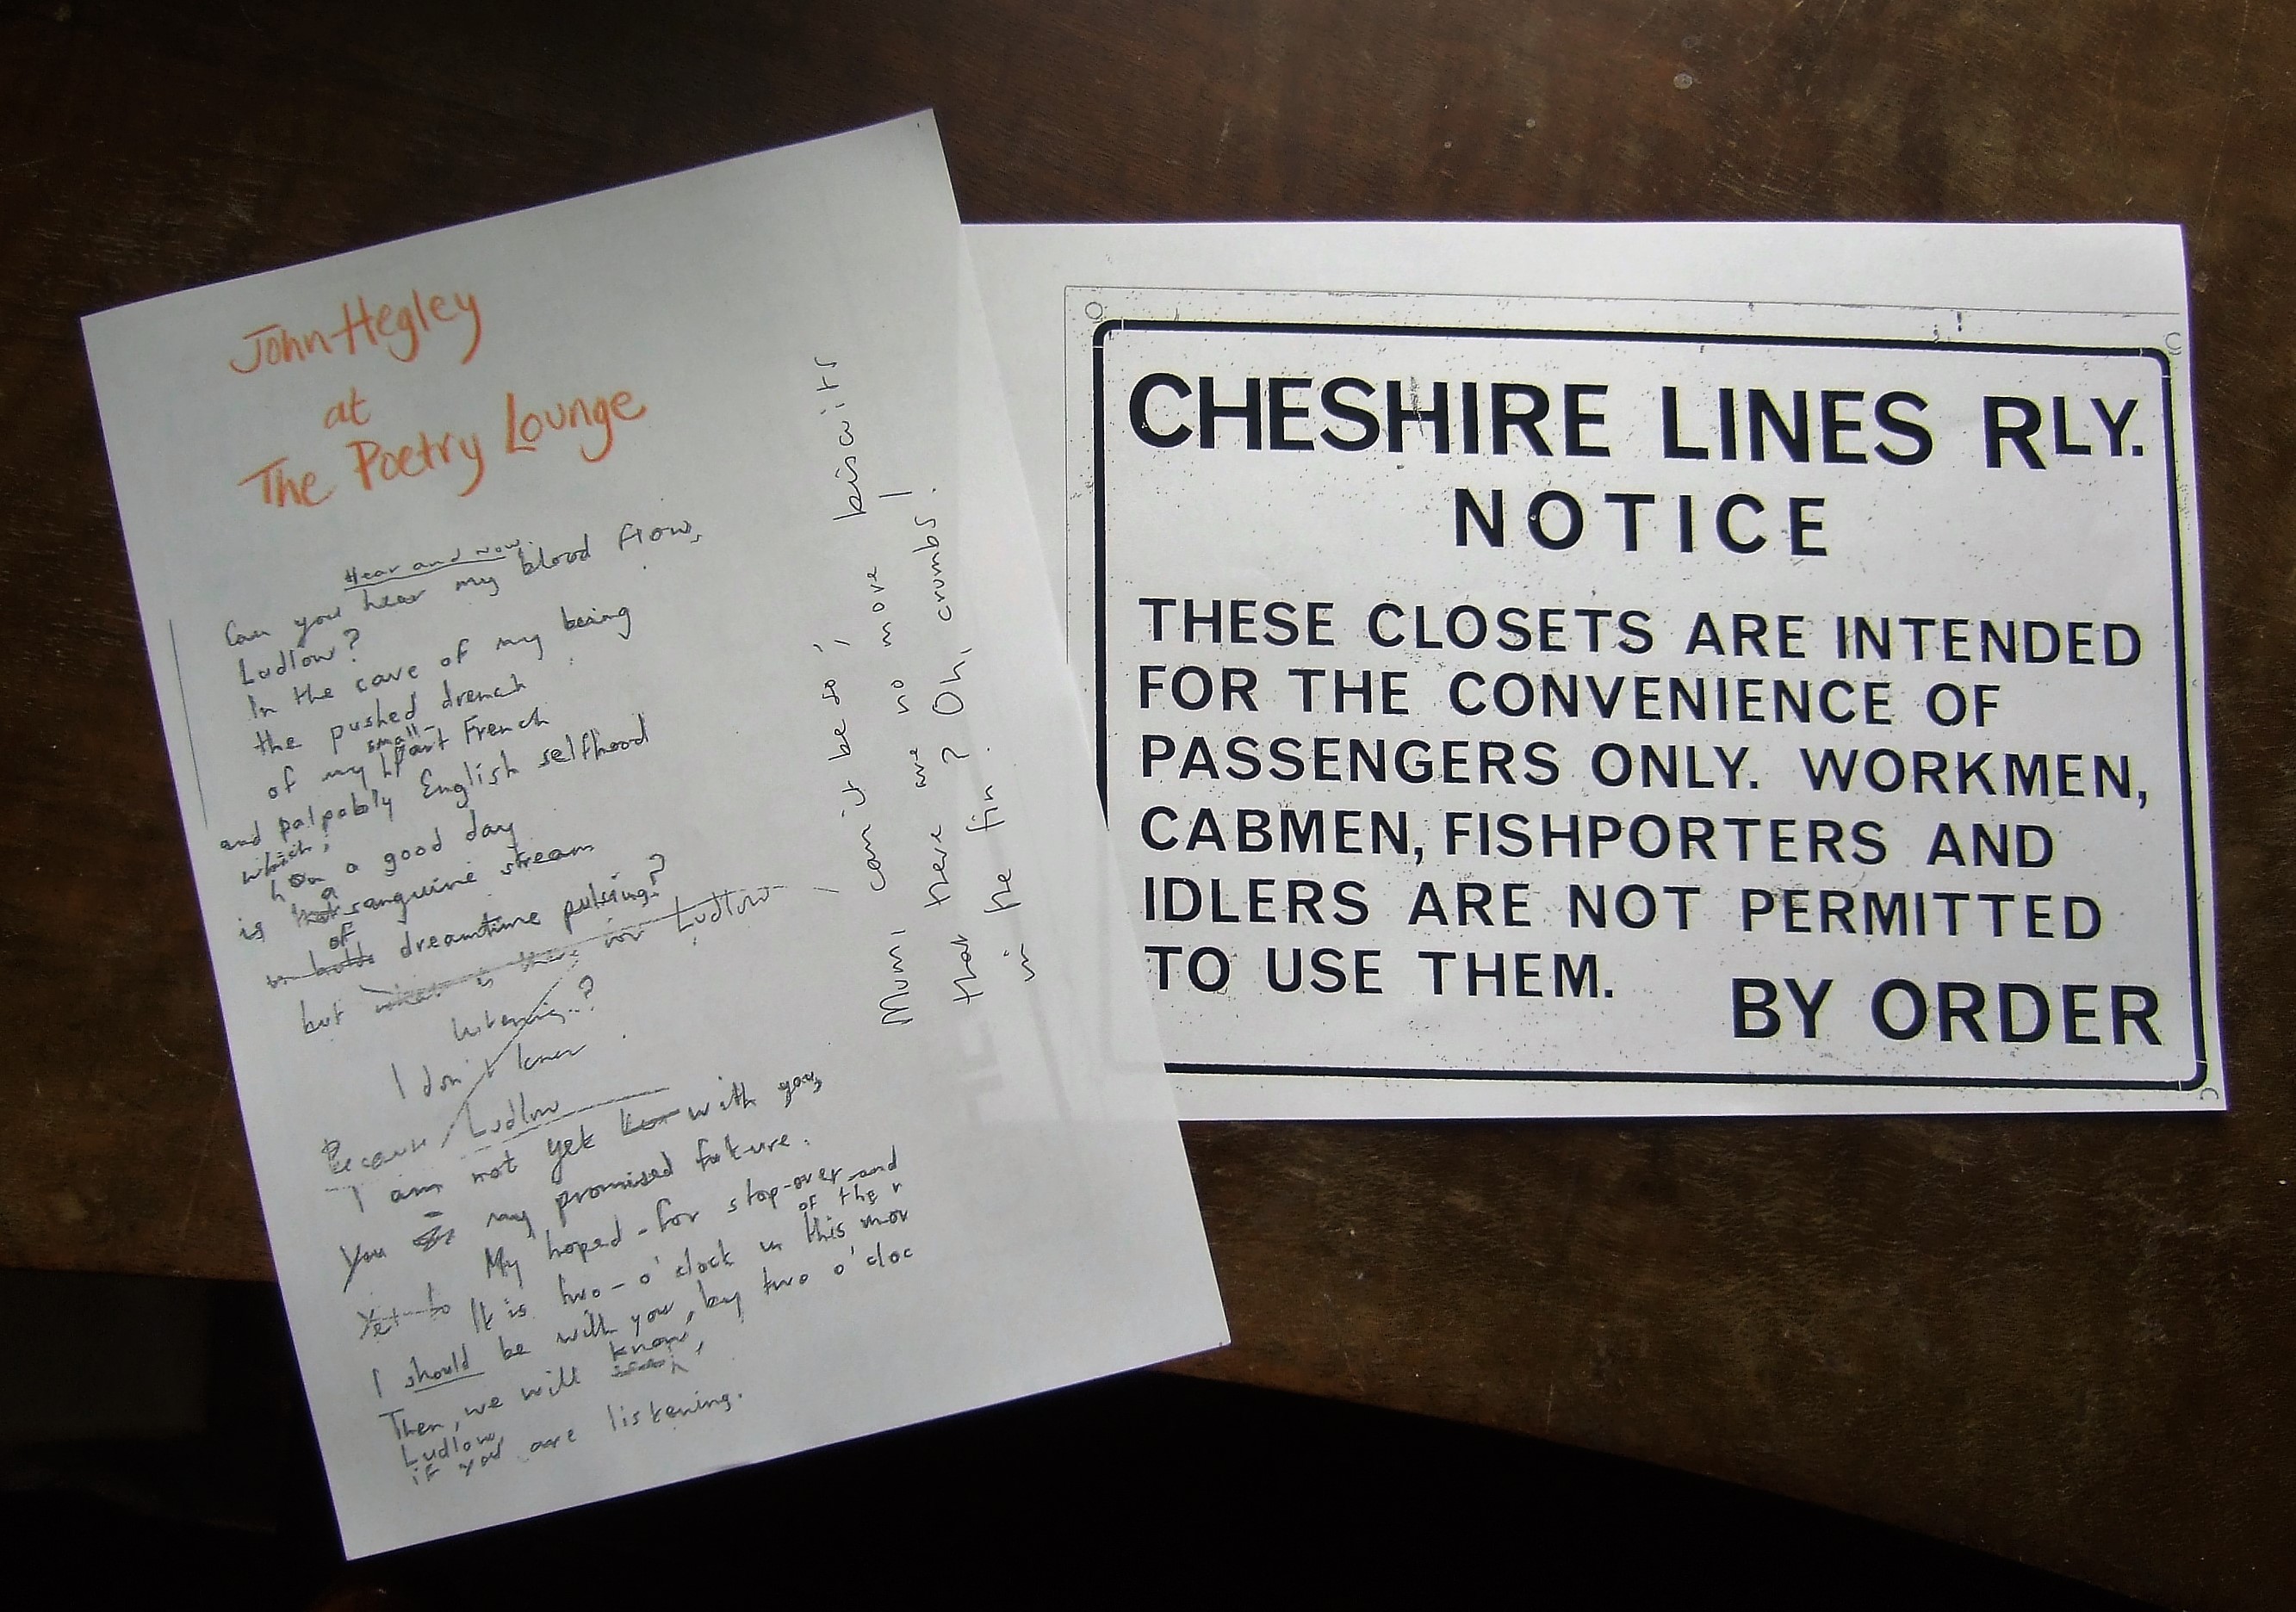 John Hegley
at
The Poetry Lounge
Hear and Now.
Can you hear my blood flow,
Ludlow?
In the cave of my being
the pushed drench
small-
of my part French
and palpably English selfhood
which,
on a good day
is a sanguine stream
of
in both dreamtime pulsing?
but what is there for Ludlow
listening..?
I don't know
Because Ludlow
I am not yet with you,
You my promised future.
My hoped-for stop-over and
of the
Yet to It is two-o'clock in this mor
I should be with you, by two o'cloc
Then, we will know,
Ludlow,
if you are listening.
Mum, can it be so,
there are no more biscuits
that ? Oh, crumbs!
in the tin
CHESHIRE LINES RLY.
NOTICE
THESE CLOSETS ARE INTENDED
FOR THE CONVENIENCE OF
PASSENGERS ONLY. WORKMEN,
CABMEN, FISHPORTERS AND
IDLERS ARE NOT PERMITTED
TO USE THEM.
BY ORDER